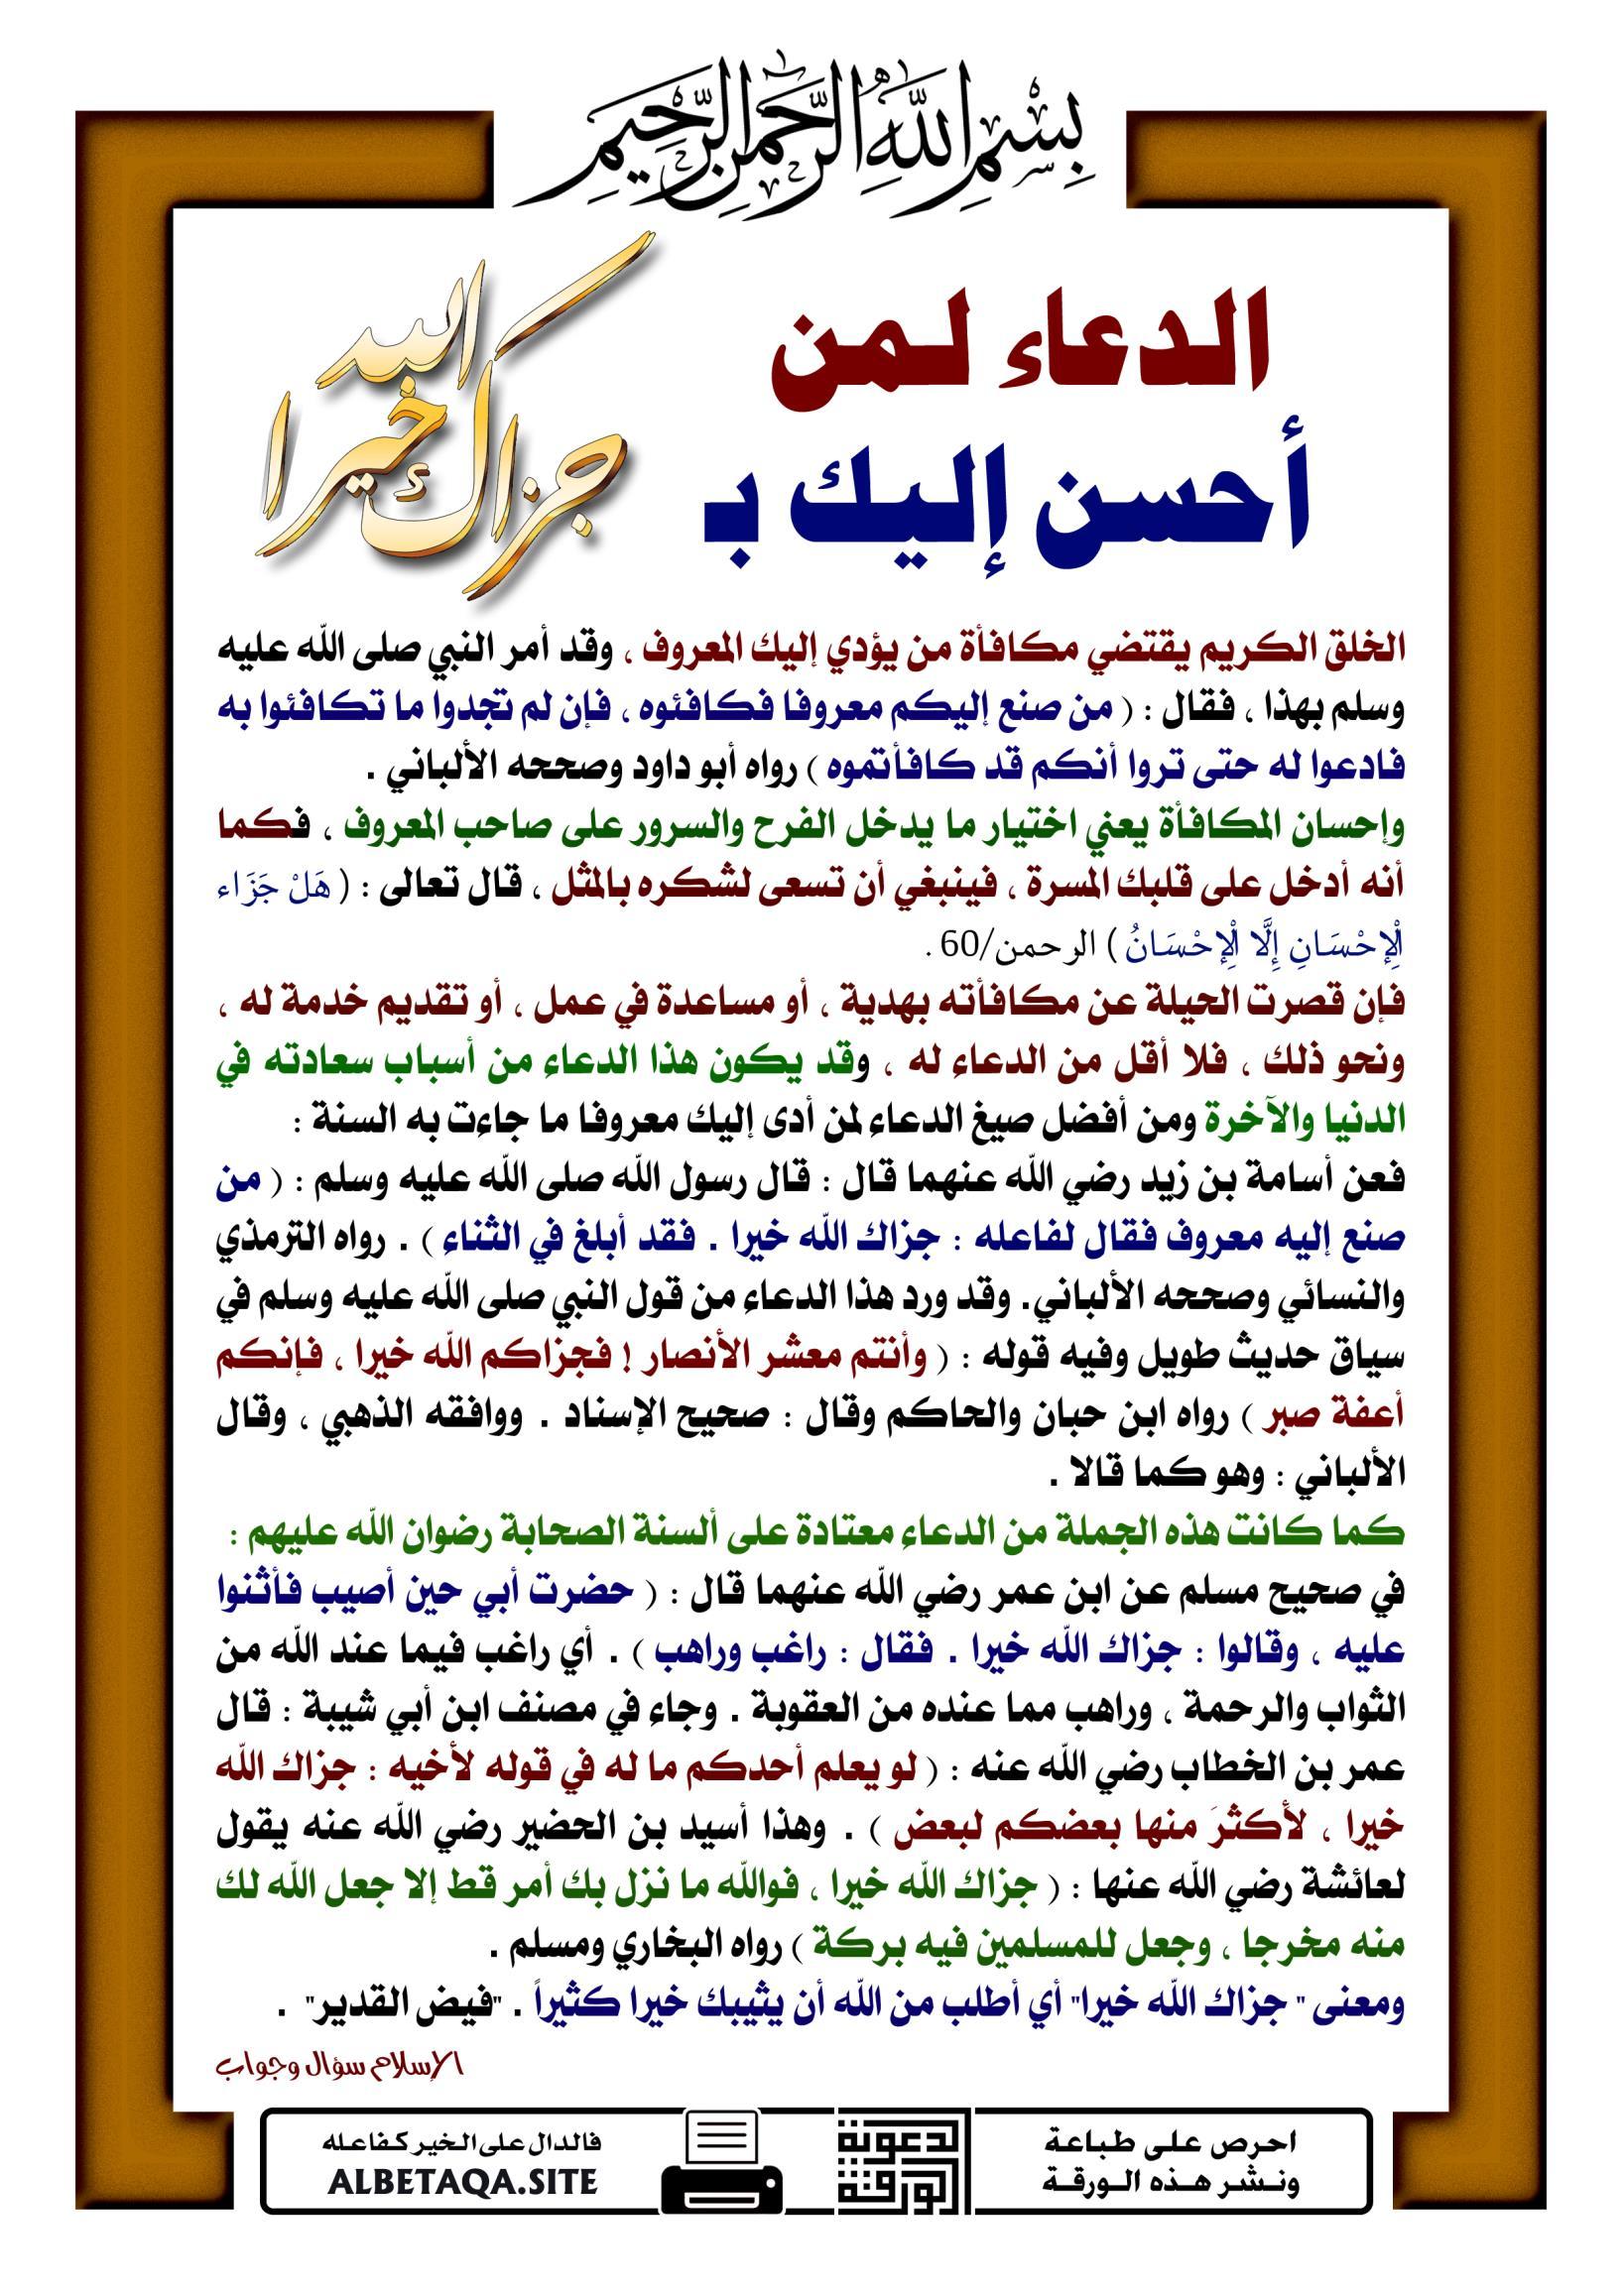 بِسْمِ اللَّهِ الرَّحْمَنِ الرَّحِيمِ
الدعاء لمن
أحسن إليك بـ
جزاك الله خيرا
الخلق الكريم يقتضي مكافأة من يؤدي إليك المعروف ، وقد أمر النبي صلى الله عليه
وسلم بهذا ، فقال : ( من صنع إليكم معروفا فكافئوه ، فإن لم تجدوا ما تكافئوا به
فادعوا له حتى تروا أنكم قد كافأتموه ) رواه أبو داود وصححه الألباني .
وإحسان المكافأة يعني اختيار ما يدخل الفرح والسرور على صاحب المعروف ، فكما
أنه أدخل على قلبك المسرة ، فينبغي أن تسعى لشكره بالمثل ، قال تعالى : ( هَلْ جَزَاء
الْإِحْسَانِ إِلَّا الْإِحْسَانُ ) الرحمن/60 .
فإن قصرت الحيلة عن مكافأته بهدية ، أو مساعدة في عمل ، أو تقديم خدمة له ،
ونحو ذلك ، فلا أقل من الدعاء له ، وقد يكون هذا الدعاء من أسباب سعادته في
الدنيا والآخرة ومن أفضل صيغ الدعاء لمن أدى إليك معروفا ما جاءت به السنة :
فعن أسامة بن زيد رضي الله عنهما قال : قال رسول الله صلى الله عليه وسلم : ( من
صنع إليه معروف فقال لفاعله : جزاك الله خيرا . فقد أبلغ في الثناء ) . رواه الترمذي
والنسائي وصححه الألباني. وقد ورد هذا الدعاء من قول النبي صلى الله عليه وسلم في
سياق حديث طويل وفيه قوله : ( وأنتم معشر الأنصار ! فجزاكم الله خيرا ، فإنكم
أعفة صبر ) رواه ابن حبان والحاكم وقال : صحيح الإسناد . ووافقه الذهبي ، وقال
الألباني : وهو كما قالا .
كما كانت هذه الجملة من الدعاء معتادة على ألسنة الصحابة رضوان الله عليهم :
في صحيح مسلم عن ابن عمر رضي الله عنهما قال : ( حضرت أبي حين أصيب فأثنوا
عليه ، وقالوا : جزاك الله خيرا . فقال : راغب وراهب ) . أي راغب فيما عند الله من
الثواب والرحمة ، وراهب مما عنده من العقوبة . وجاء في مصنف ابن أبي شيبة : قال
عمر بن الخطاب رضي الله عنه : ( لو يعلم أحدكم ما له في قوله لأخيه : جزاك الله
خيرا ، لأكثرَ منها بعضكم لبعض ) . وهذا أسيد بن الحضير رضي الله عنه يقول
لعائشة رضي الله عنها : ( جزاك الله خيرا ، فوالله ما نزل بك أمر قط إلا جعل الله لك
منه مخرجا ، وجعل للمسلمين فيه بركة ) رواه البخاري ومسلم .
ومعنى " جزاك الله خيرا" أي أطلب من الله أن يثيبك خيرا كثيراً . "فيض القدير" .
الإسلام سؤال وجواب
احرص على طباعة
ونشر هذه الورقة
الورقة
الدعوية
فالدال على الخير كفاعله
ALBETAQA.SITE